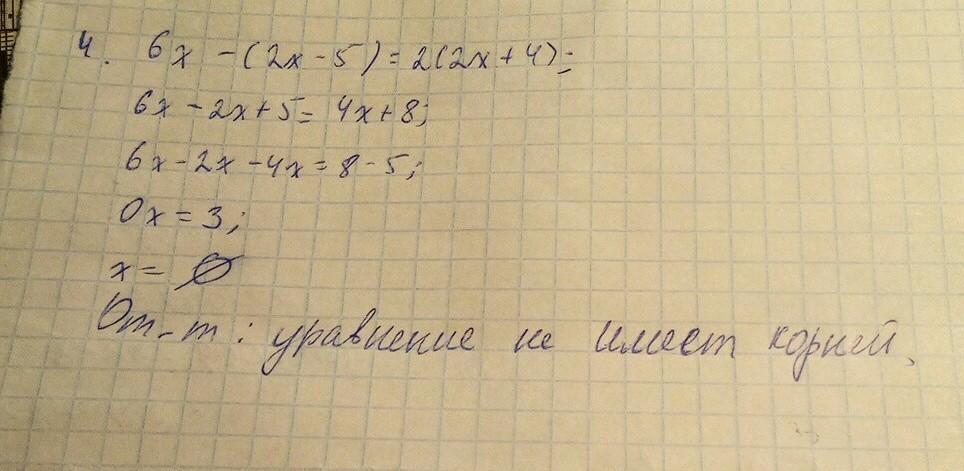 4. 6x - (2x - 5) = 2(2x + 4);
6x - 2x + 5 = 4x + 8;
6x - 2x - 4x = 8 - 5;
0x = 3;
x = ∅
От-т: уравнение не имеет корней.